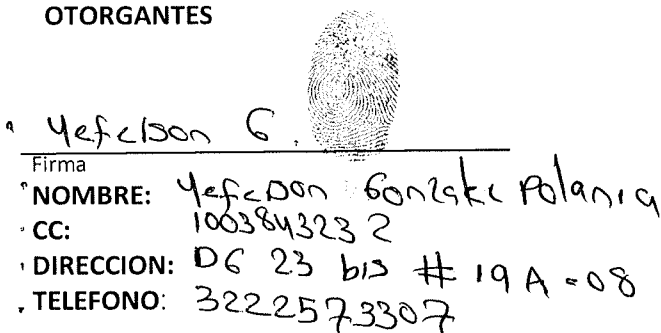 OTORGANTES
Yefelson G.
Firma
NOMBRE: Yefeson Gonzalez Polania
CC: 1003843232
DIRECCION: DG 23 bis # 19A-08
TELEFONO: 3222573307